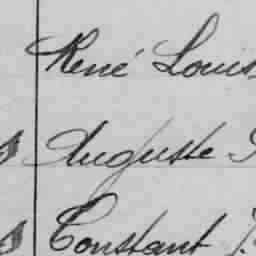 René Louis
Auguste
Constant